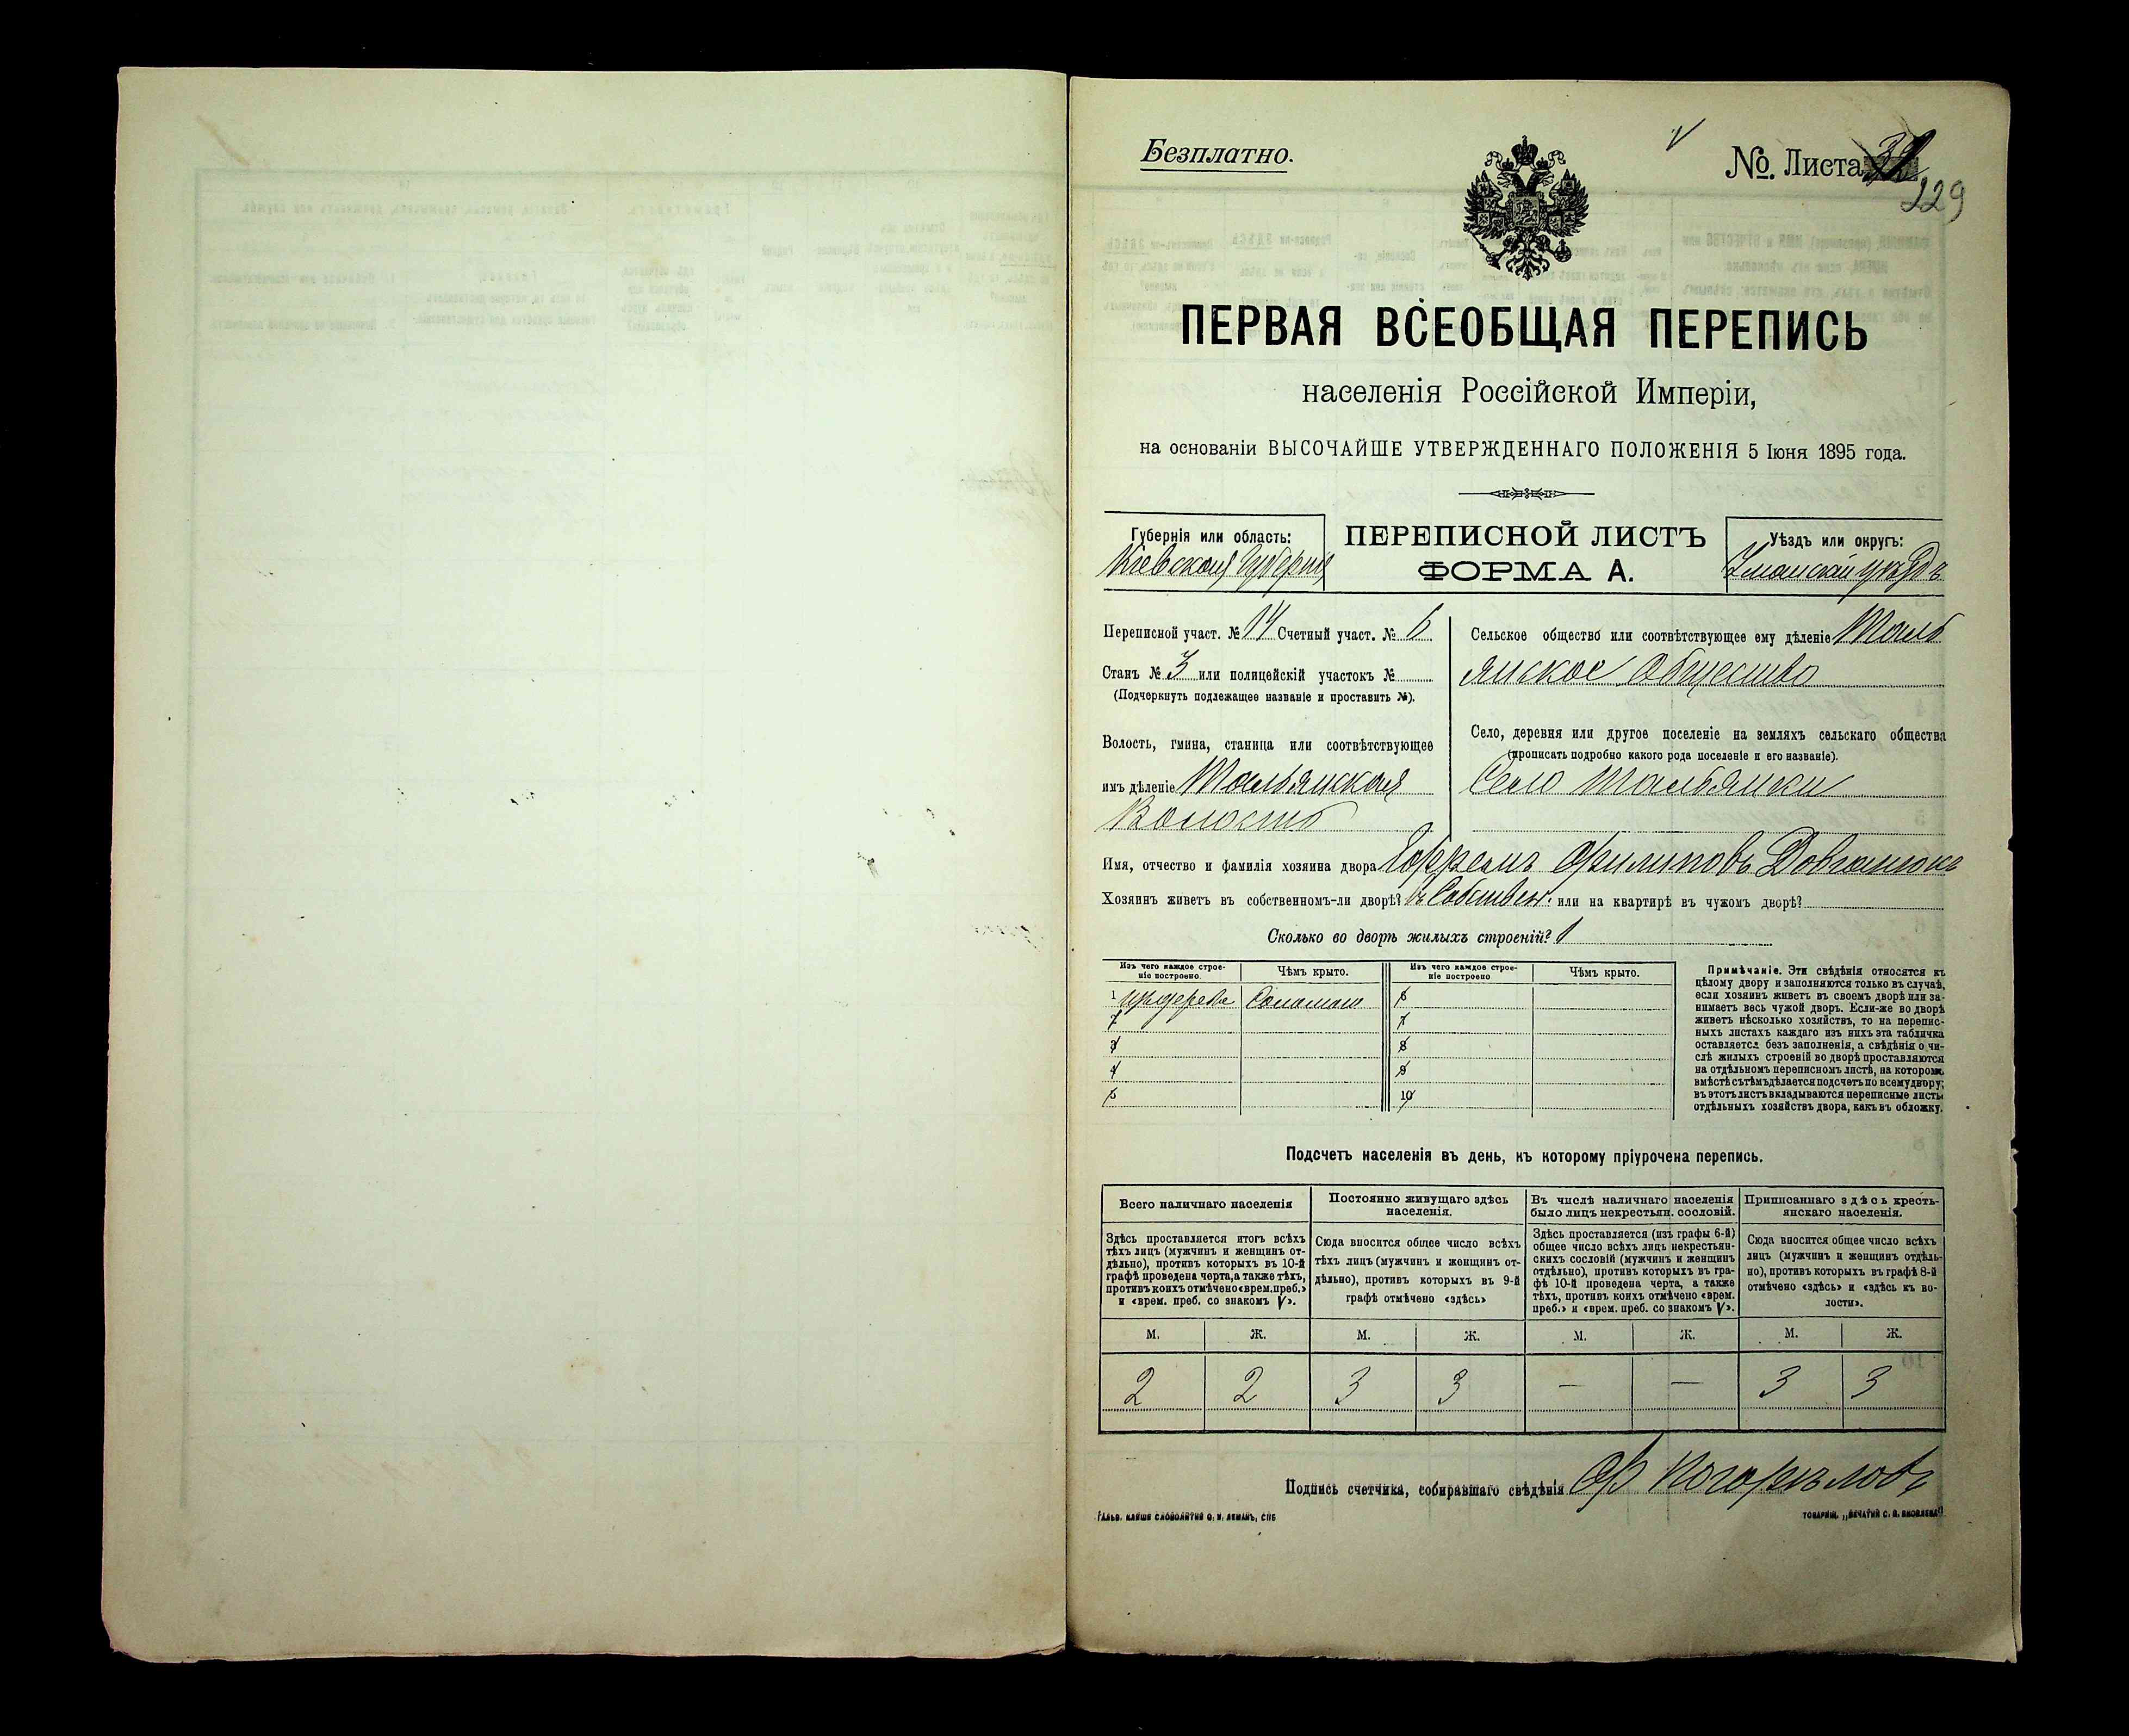 Безплатно.
№. Листа 32
229
ПЕРВАЯ ВСЕОБЩАЯ ПЕРЕПИСЬ
населенія Россійской Имперіи,
на основаніи ВЫСОЧАЙШЕ УТВЕРЖДЕННАГО ПОЛОЖЕНІЯ 5 Іюня 1895 года.
Губернія или область:
Кіевская Губернія
ПЕРЕПИСНОЙ ЛИСТЪ
ФОРМА А.
Уѣздъ или округъ:
Уманскій уѣздъ
Переписной участ. № 14 Счетный участ. № 6
Станъ № 3 или полицейскій участокъ №
(Подчеркнуть подлежащее названіе и проставить №).
Волость, гмина, станица или соотвѣтствующее
имъ дѣленіе Тальянская
Волость
Сельское общество или соотвѣтствующее ему дѣленіе Таль
янское Общество
Село, деревня или другое поселеніе на земляхъ сельскаго общества
(прописать подробно какого рода поселеніе и его названіе).
Село Тальянки
Имя, отчество и фамилія хозяина двора Ефремъ Филиповъ Довгонюкъ
Хозяинъ живетъ въ собственномъ-ли дворѣ? въ Собствен. или на квартирѣ въ чужомъ дворѣ?
Сколько во дворѣ жилыхъ строеній? 1
Изъ чего каждое строе-
ніе построено.
Чѣмъ крыто.
Изъ чего каждое строе-
ніе построено
Чѣмъ крыто.
1 издерева Соломою 6
2 7
3 8
4 9
5 10
Примѣчаніе. Эти свѣдѣнія относятся къ
цѣлому двору и заполняются только въ случаѣ,
если хозяинъ живетъ въ своемъ дворѣ или за-
нимаетъ весь чужой дворъ. Если-же во дворѣ
живетъ нѣсколько хозяйствъ, то на перепис-
ныхъ листахъ каждаго изъ нихъ эта табличка
оставляется безъ заполненія, а свѣдѣнія о чи-
слѣ жилыхъ строеній во дворѣ проставляются
на отдѣльномъ переписномъ листѣ, на которомъ
вмѣстѣ съ тѣмъ дѣлается подсчетъ по всему двору;
въ этотъ листъ вкладываются переписные листы
отдѣльныхъ хозяйствъ двора, какъ въ обложку.
Подсчетъ населенія въ день, къ которому пріурочена перепись.
Всего наличнаго населенія
Здѣсь проставляется итогъ всѣхъ
тѣхъ лицъ (мужчинъ и женщинъ от-
дѣльно), противъ которыхъ въ 10-й
графѣ проведена черта, а также тѣхъ,
противъ коихъ отмѣчено «врем. преб.»
и «врем. преб. со знакомъ V».
Постоянно живущаго здѣсь
населенія.
Сюда вносится общее число всѣхъ
тѣхъ лицъ (мужчинъ и женщинъ от-
дѣльно), противъ которыхъ въ 9-й
графѣ отмѣчено «здѣсь»
Въ числѣ наличнаго населенія
было лицъ некрестьян. сословій.
Здѣсь проставляется (изъ графы 6-й)
общее число всѣхъ лицъ некрестьян-
скихъ сословій (мужчинъ и женщинъ
отдѣльно), противъ которыхъ въ гра-
фѣ 10-й проведена черта, а также
тѣхъ, противъ коихъ отмѣчено «врем.
преб.» и «врем. преб. со знакомъ V».
Приписаннаго здѣсь кресть-
янскаго населенія.
Сюда вносится общее число всѣхъ
лицъ (мужчинъ и женщинъ отдѣль-
но), противъ которыхъ въ графѣ 8-й
отмѣчено «здѣсь» и «здѣсь къ во-
лости».
М. Ж. М. Ж. М. Ж. М. Ж.
2 2 3 3 — — 3 3
Подпись счетчика, собиравшаго свѣдѣнія Ф Погорѣловъ
ТОВАРИЩ. „ПЕЧАТНЯ С. П. ЯКОВЛЕВА"